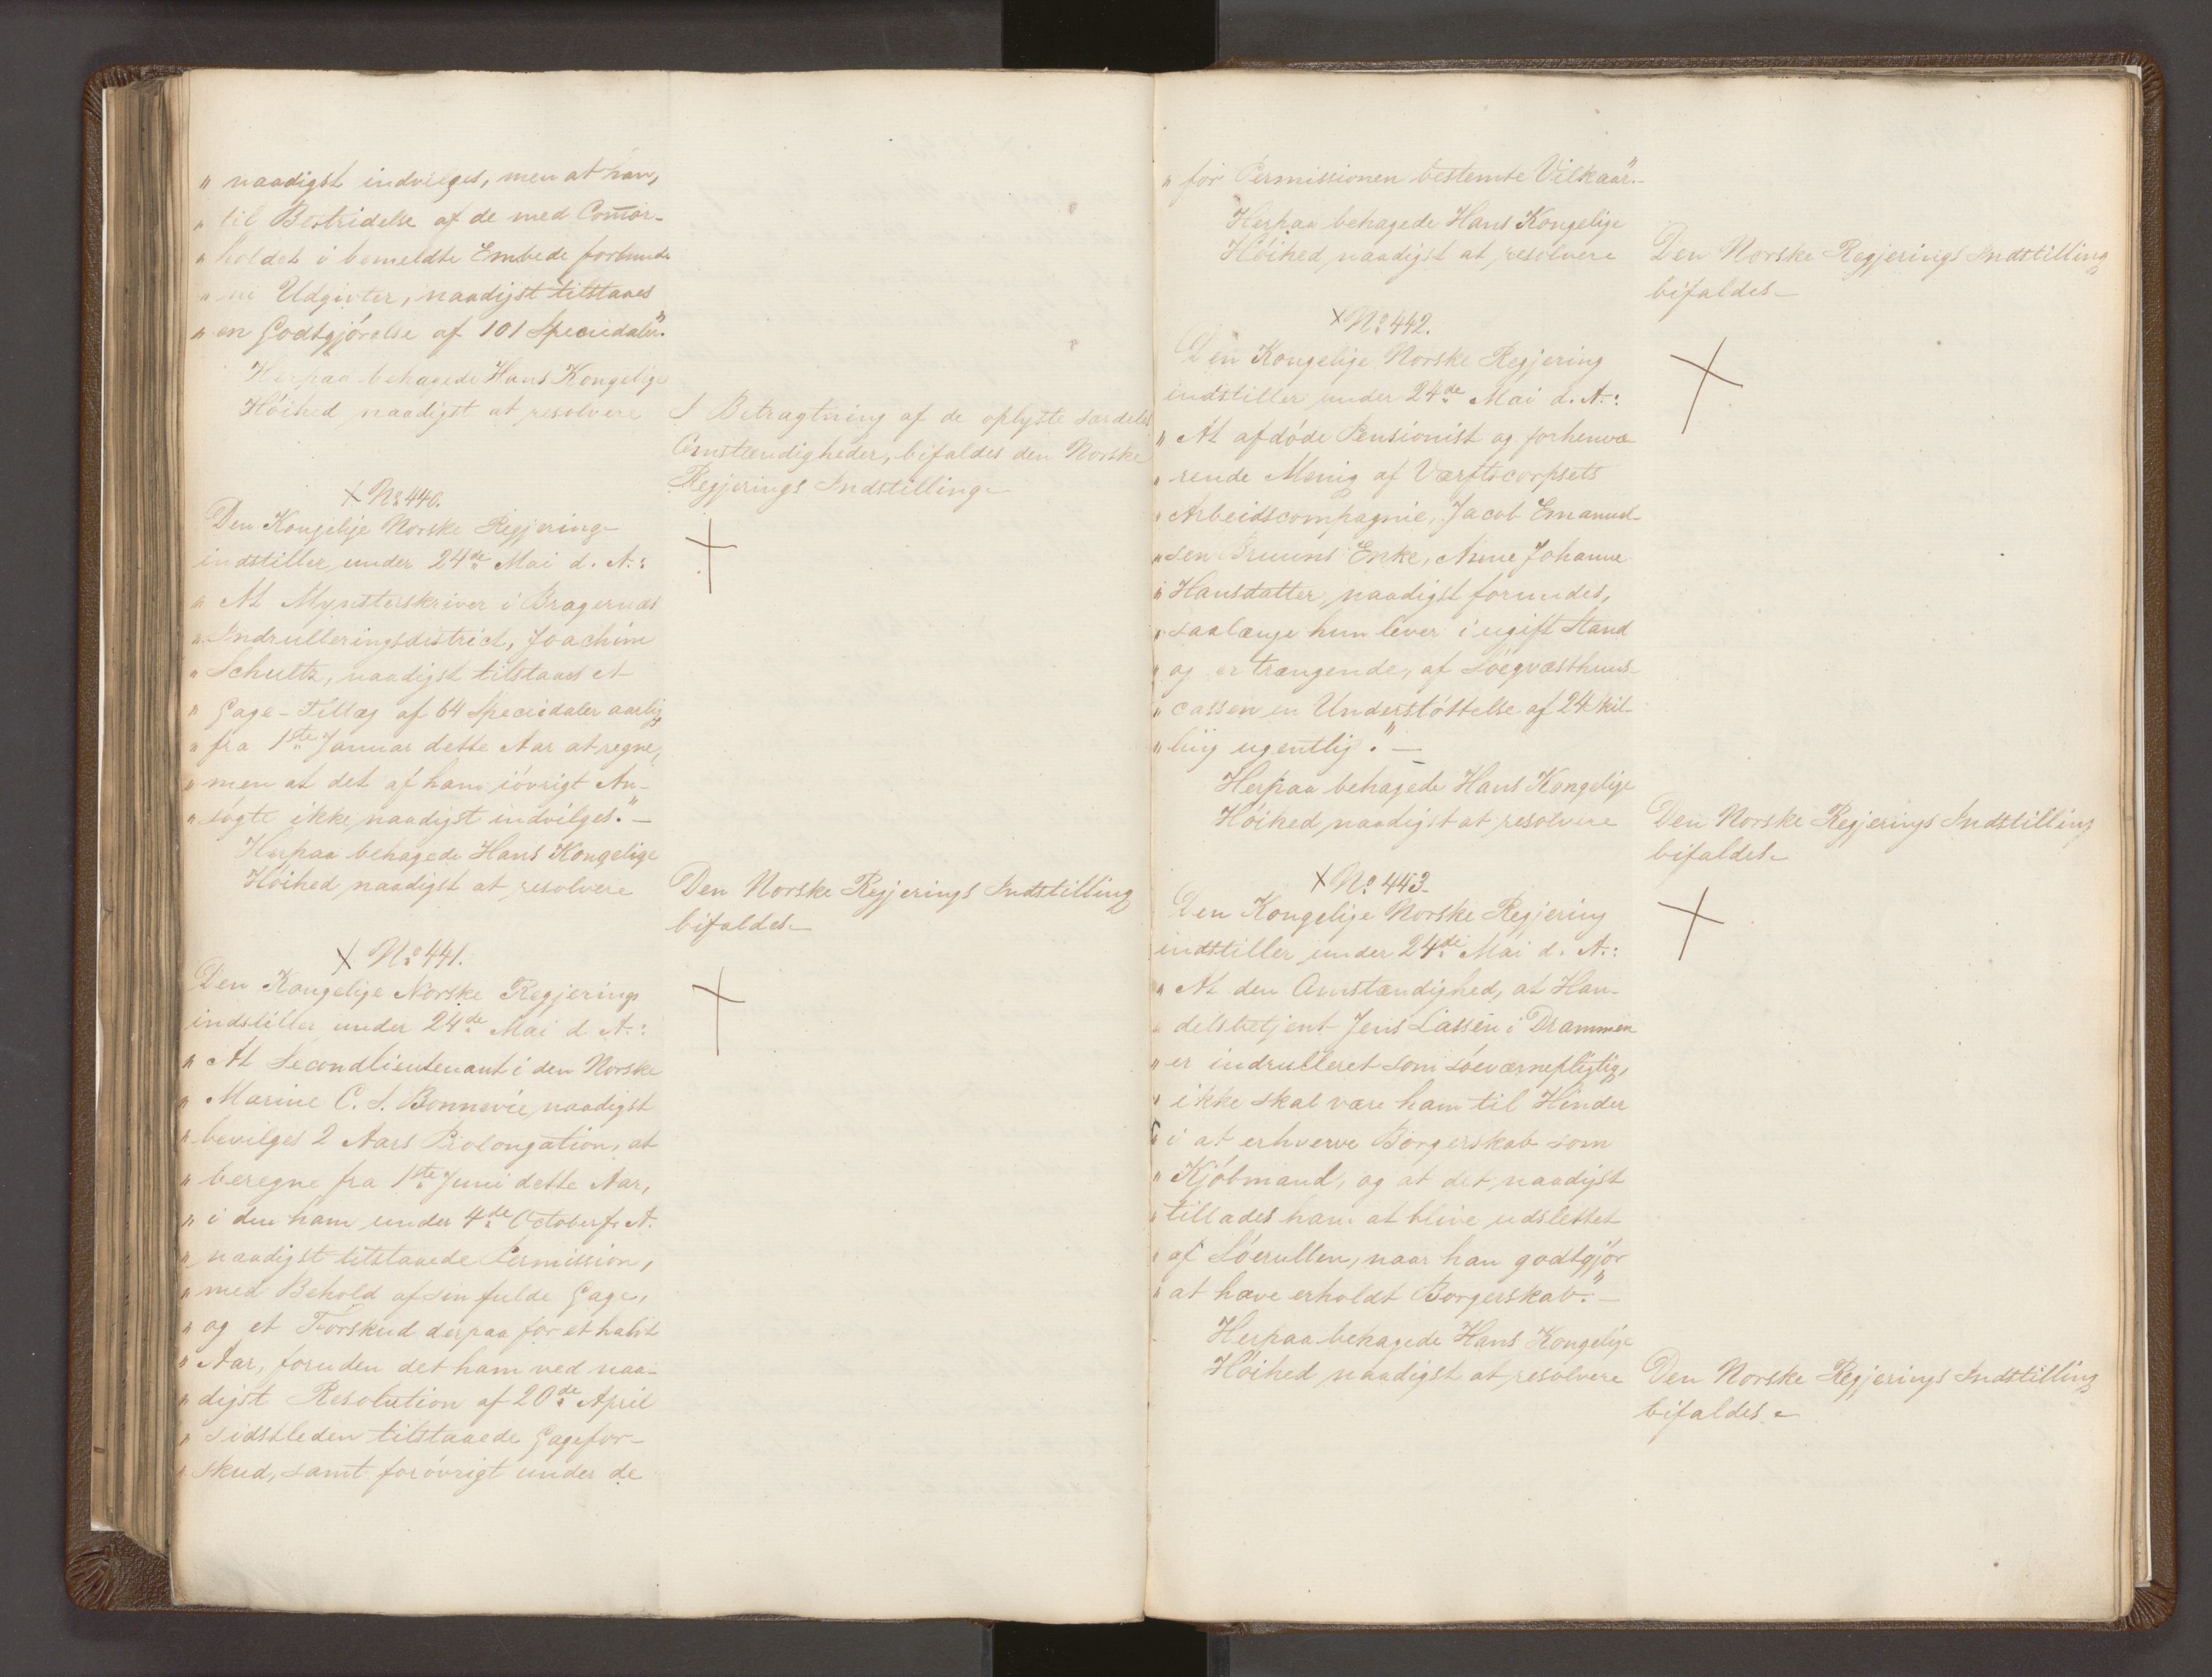 " naadigst indvilges, men at han,
" til Bestridelse af de med Comor-
" holdet i bemeldte Embede forbund-
" ne Udgivter, naadigst tilstaaes
" en Godtgjörelse af 101 Speciedaler."
Herpaa behagede Hans Kongelige
Höihed naadigst at resolvere
I Betragtning af de oplyste særdeles
Omstændigheder, bifaldes den Norske
Regjerings Indstilling.
x No 440.
Den Kongelige Norske Regjering
indstiller under 24de Mai d. A.:
" At Mynsterskriver i Bragernæs
" Indrulleringsdistrict, Joachim
" Schultz, naadigst tilstaaes et
" Gage-Tillæg af 64 Speciedaler aarlig
" fra 1ste Januar dette Aar at regne,
" men at det af ham iövrigt An-
" sögte ikke naadigst indvilges." —
Herpaa behagede Hans Kongelige
Höihed naadigst at resolvere
Den Norske Regjerings Indstilling
bifaldes.
x No 441.
Den Kongelige Norske Regjering
indstiller under 24de Mai d. A.:
" At Secondlieutenant i den Norske
" Marine C. S. Bonnevie, naadigst
" bevilges 2 Aars Prolongation, at
" beregne fra 1ste Juni dette Aar,
" i den ham under 4de October f. A.
" naadigst tilstaaede Permission,
" med Behold af sin fulde Gage,
" og et Forskud derpaa for et halvt
" Aar, foruden det ham ved naa-
" digst Resolution af 20de April
" sidstleden tilstaaede Gagefor-
" skud, samt forövrigt under de
" for Permissionen bestemte Vilkaar." -
Herpaa behagede Hans Kongelige
Höihed naadigst at resolvere
Den Norske Regjerings Indstilling
bifaldes —
x No 442.
Den Kongelige Norske Regjering
indstiller under 24de Mai d. A.:
" At afdöde Pensionist og forhenvæ-
" rende Menig af Værftscorpsets
" Arbeidscompagnie, Jacob Emanuel-
" sen Bruuns Enke, Anne Johanne
" Hansdatter, naadigst forundes,
" saalænge hun lever i ugift Stand
" og er trængende, af Söeqvæsthuus-
" cassen en Understöttelse af 24 Skil-
" ling ugentlig." —
Herpaa behagede Hans Kongelige
Höihed naadigst at resolvere
Den Norske Regjerings Indstilling
bifaldes.
x No 443.
Den Kongelige Norske Regjering
indstiller under 24de Mai d. A.:
" At den Omstændighed, at Han-
" delsbetjent Jens Lassen i Drammen
" er indrulleret som söeværnepligtig,
" ikke skal være ham til Hinder
" i at erhverve Borgerskab som
" Kjöbmand, og at det naadigst
" tillades ham at blive udslettet
" af Söerullen, naar han godtgjör
" at have erholdt Borgerskab." —
Herpaa behagede Hans Kongelige
Höihed naadigst at resolvere
Den Norske Regjerings Indstilling
bifaldes.